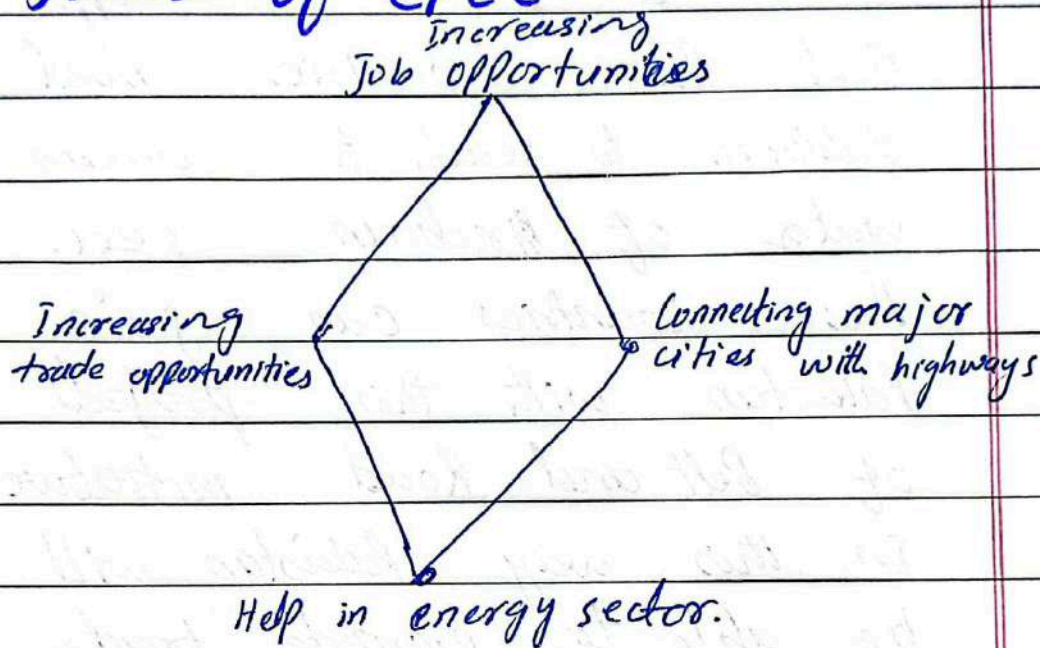 of CPEC
Increasing
Job opportunities
Increasing
trade opportunities
Connecting major
cities with highways
Help in energy sector.